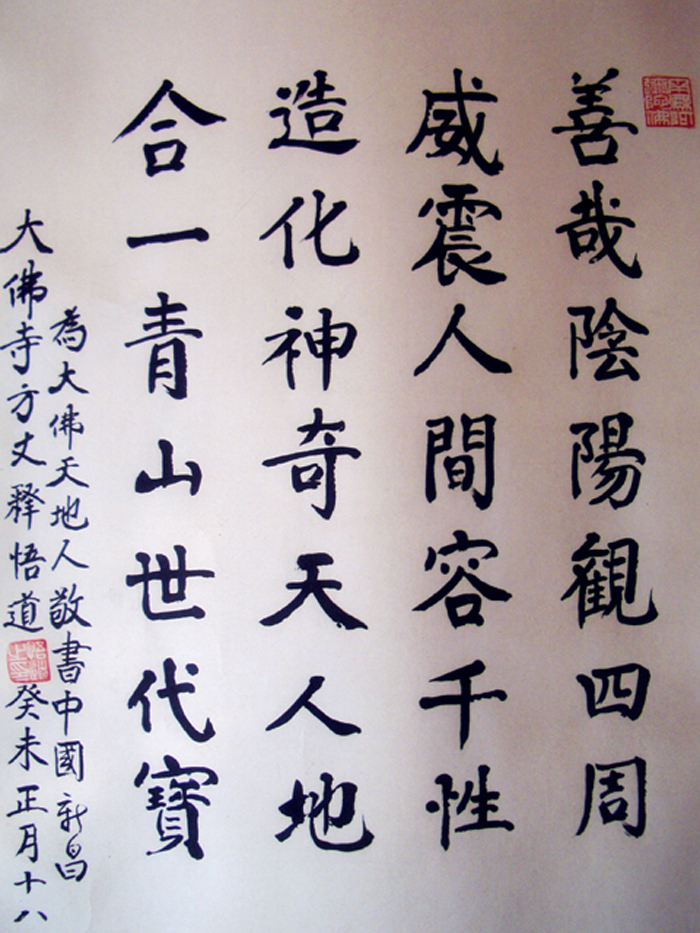 善哉陰陽観四周
威震人間容千性
造化神奇天人地
合一青山世代寶
為大佛天地人敬書中國新昌
大佛寺方丈釋悟道
癸未正月十八
南無阿彌陀佛